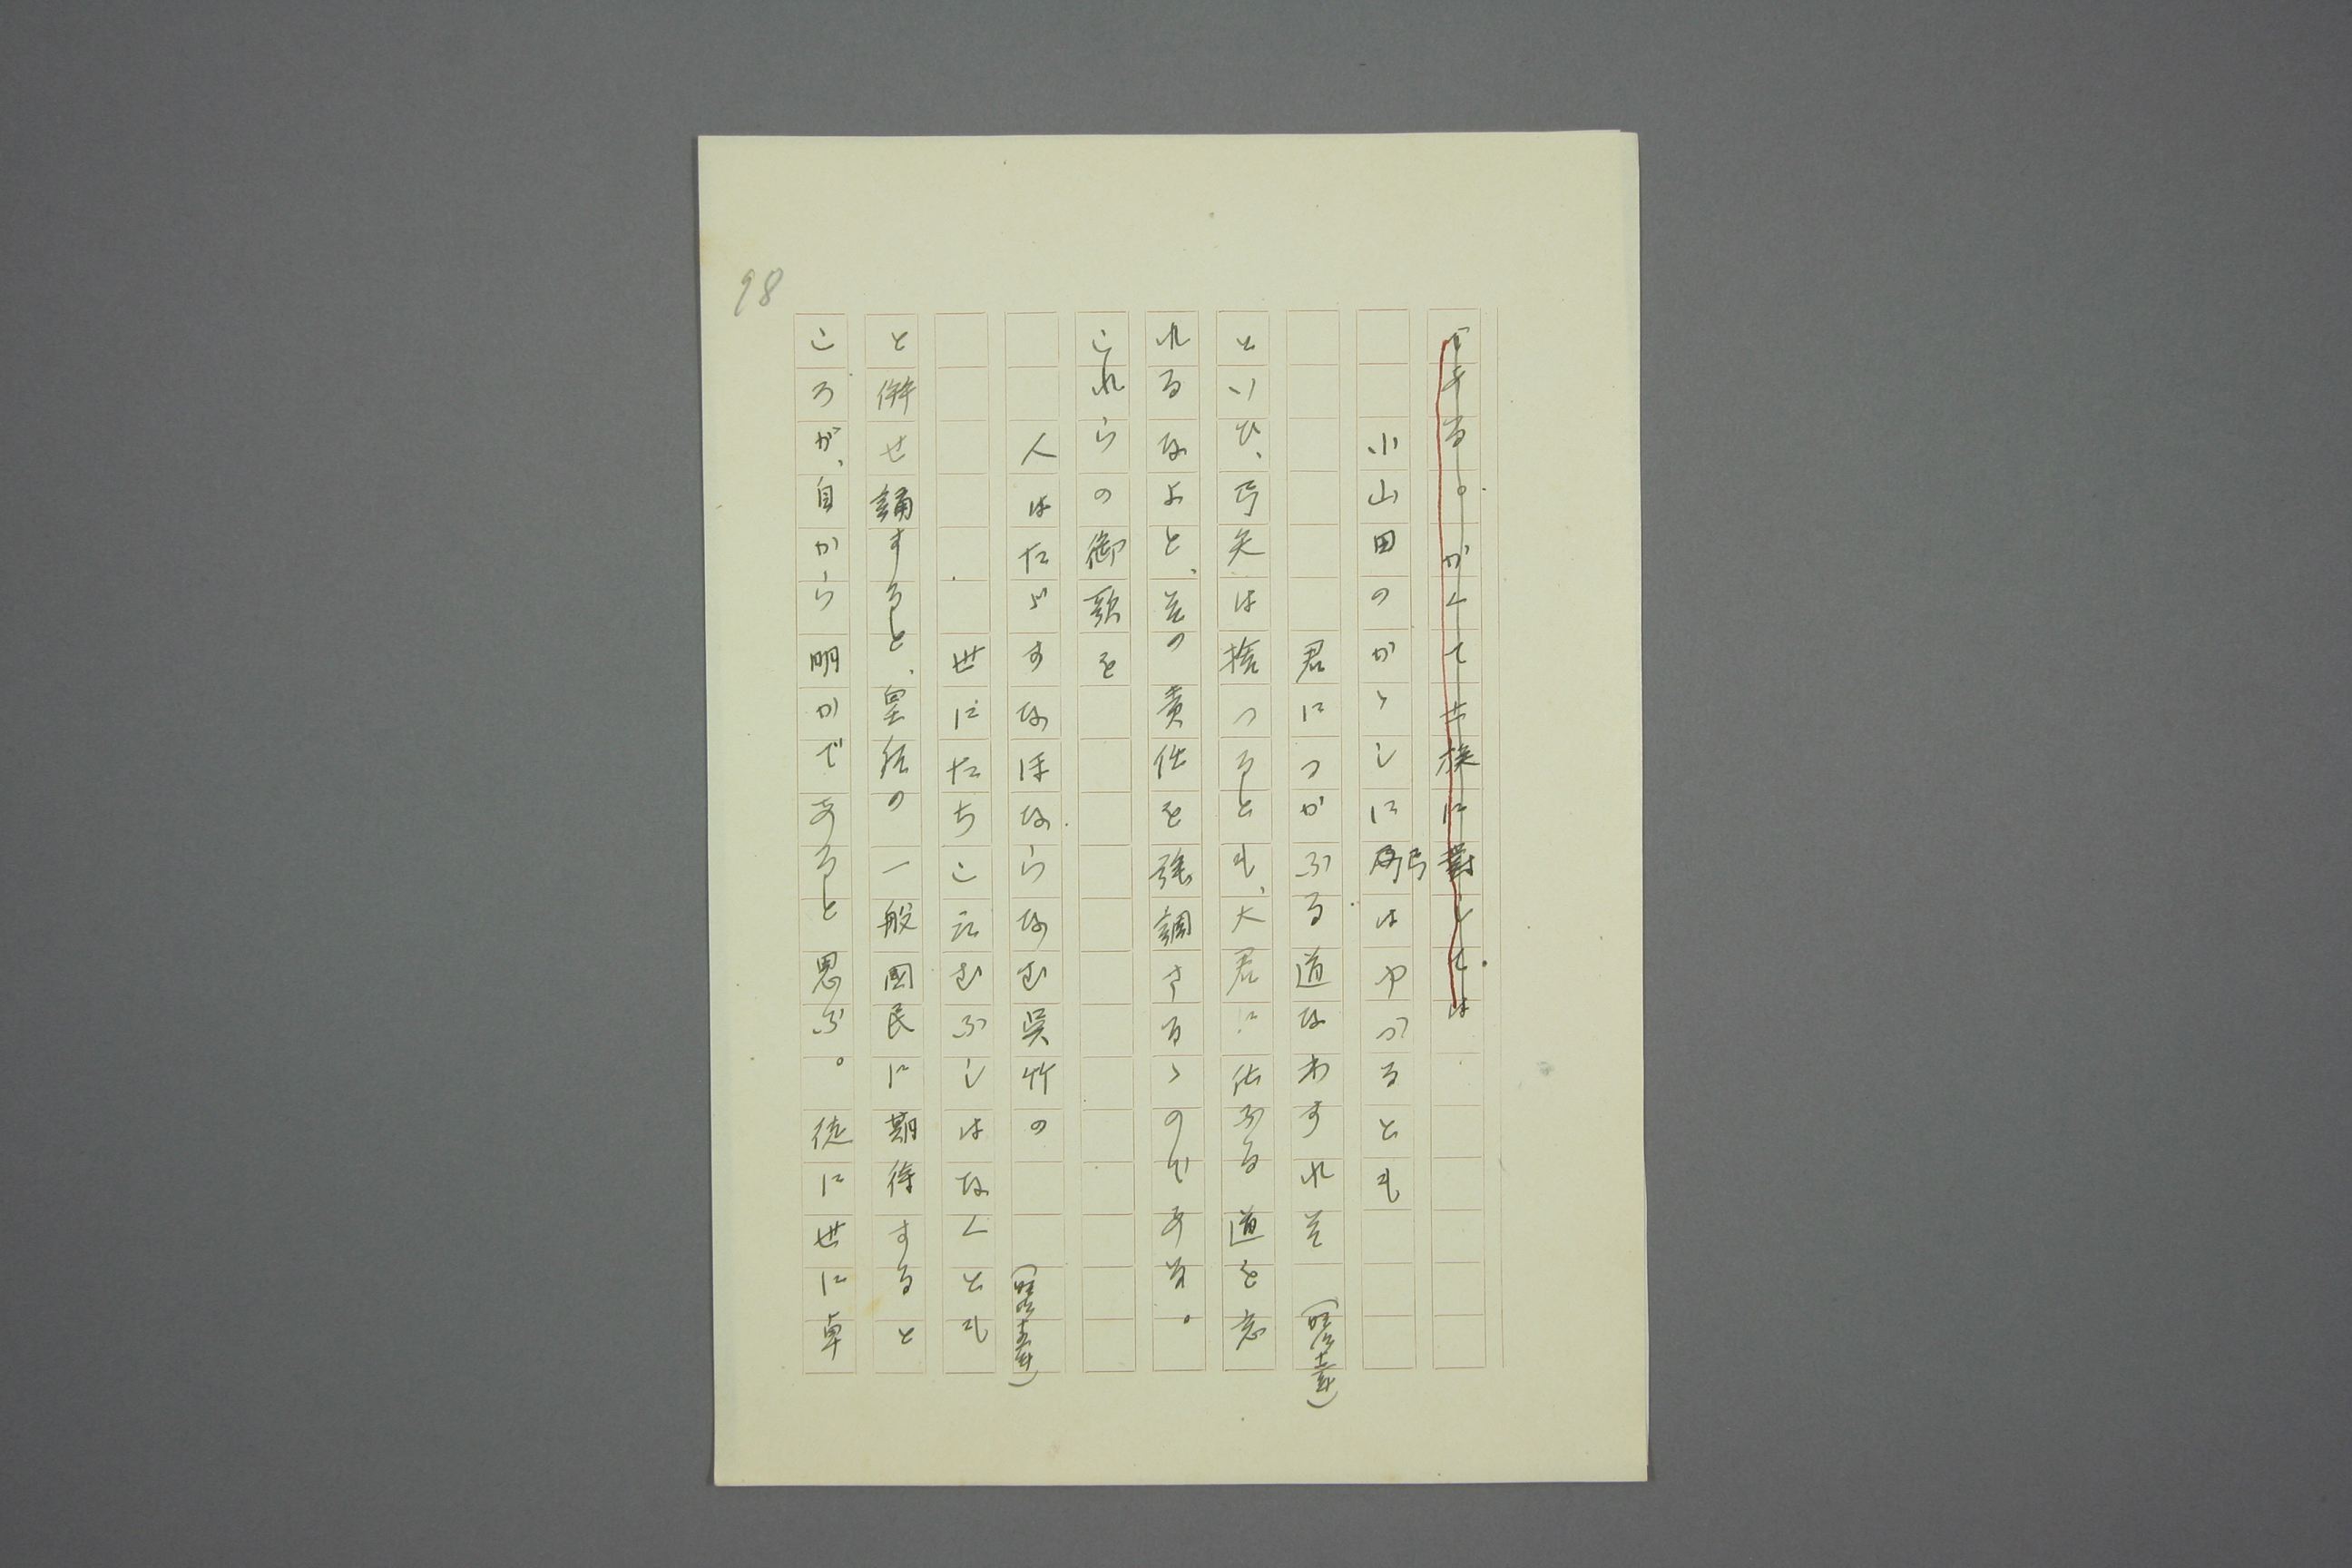 である。かくて士族に對しては
小山田のかゝしに弓はやつるとも
君につかふる道なわすれそ (明治十一年)
といひ、弓矢は捨つるとも、大君に仕ふる道を忘
れるなよと、その責任を強調さるゝのである。
これらの御歌を
人はたゞすなほならなむ呉竹の
世にたちこえむふしはなくとも (明治十五年)
と併せ誦すると、皇后の一般國民に期待すると
ころが、自から明かであると思ふ。徒に世に卓
98